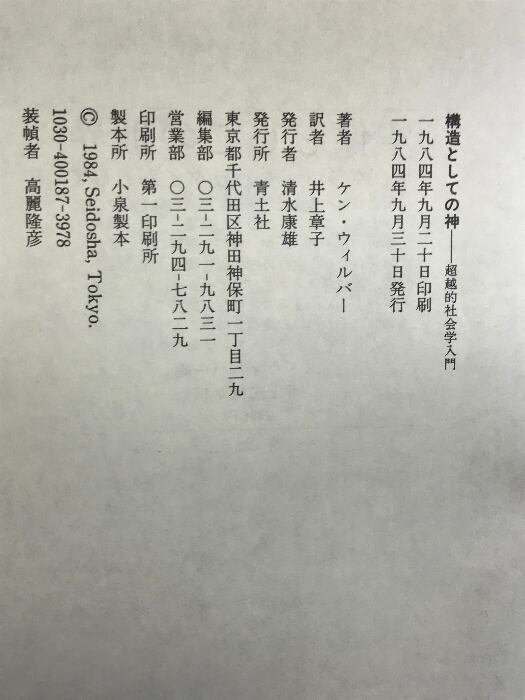 構造としての神——超越的社会学入門
一九八四年九月二十日印刷
一九八四年九月三十日発行
著者 ケン・ウィルバー
訳者 井上章子
発行者 清水康雄
発行所 青土社
東京都千代田区神田神保町一丁目二九
編集部 〇三-二九一-九八三一
営業部 〇三-二九四-七八二九
印刷所 第一印刷所
製本所 小泉製本
© 1984, Seidosha, Tokyo.
1030-400187-3978
装幀者 高麗隆彦